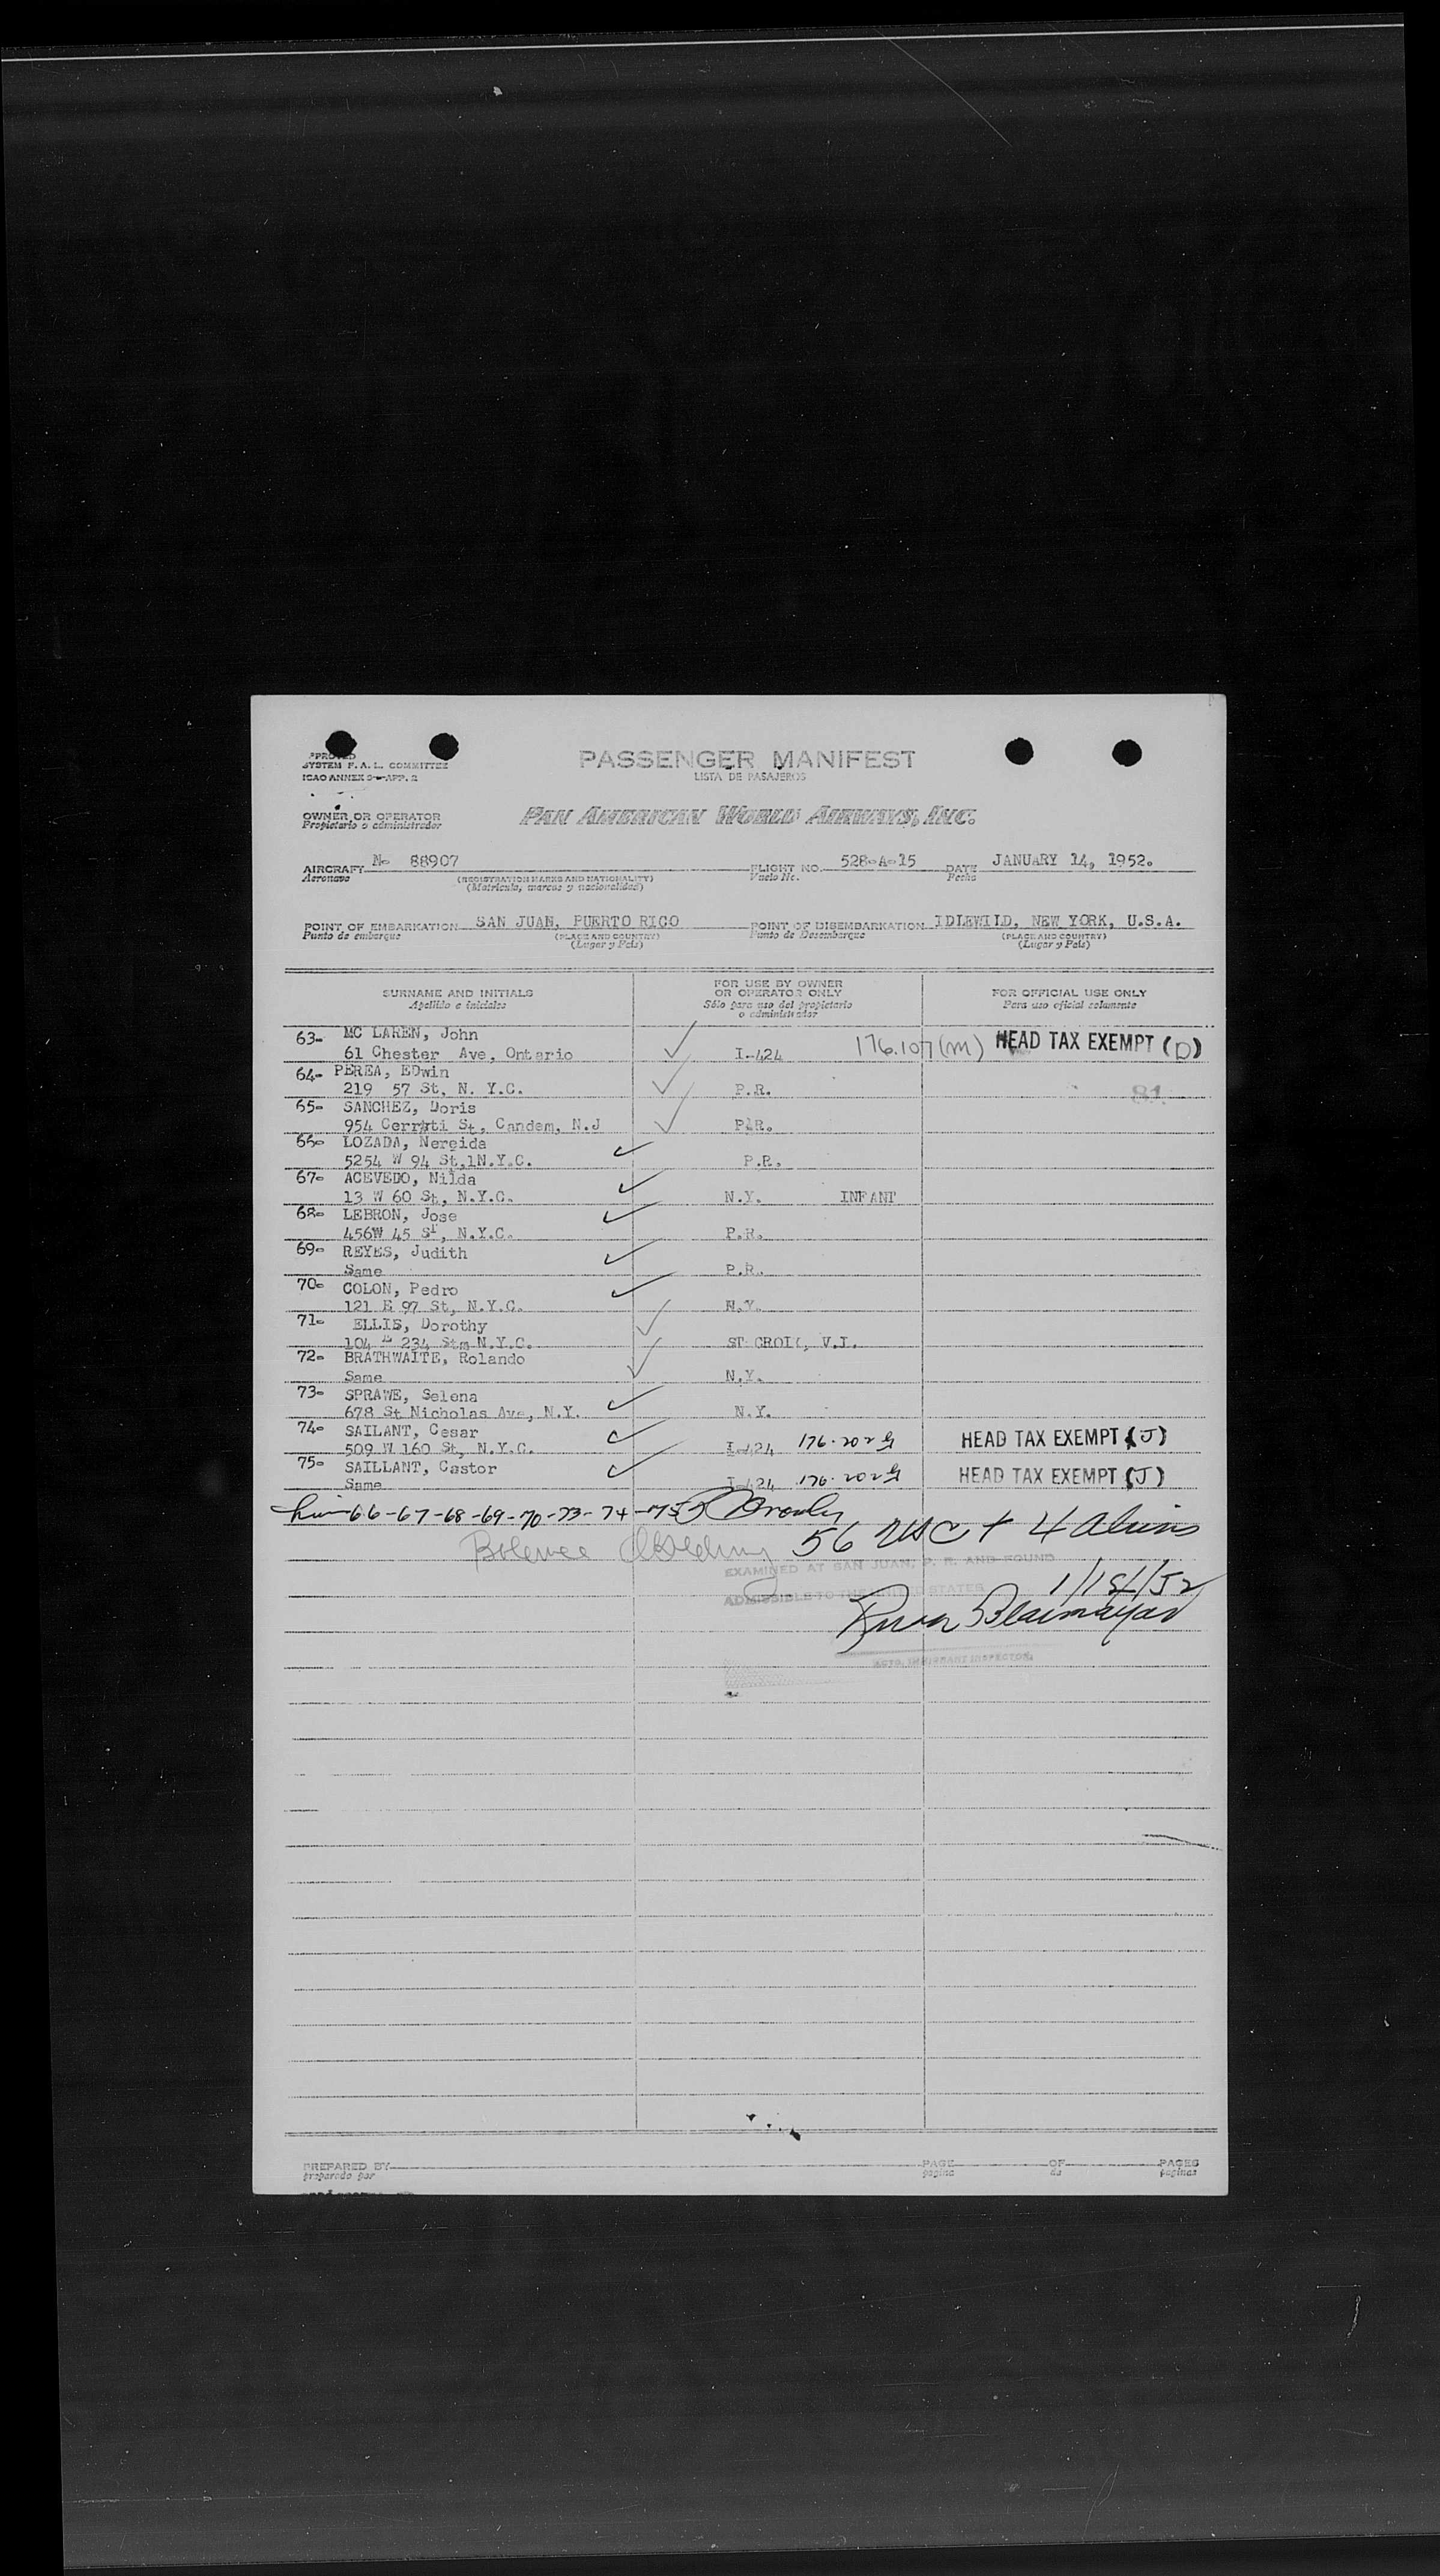 APPROVED
SYSTEM F. A. L. COMMITTEE
ICAO ANNEX 9—APP. 2
PASSENGER MANIFEST
LISTA DE PASAJEROS
OWNER OR OPERATOR
Propietario o administrador
PAN AMERICAN WORLD AIRWAYS, INC.
AIRCRAFT No 88907 FLIGHT NO. 528-A-15 DATE JANUARY 14, 1952.
Aeronave (REGISTRATION MARKS AND NATIONALITY) Vuelo No. Fecha
(Matricula, marcas y nacionalidad)
POINT OF EMBARKATION SAN JUAN, PUERTO RICO POINT OF DISEMBARKATION IDLEWILD, NEW YORK, U.S.A.
Punto de embarque (PLACE AND COUNTRY) Punto de Desembarque (PLACE AND COUNTRY)
(Lugar y País) (Lugar y País)
SURNAME AND INITIALS
Apellido e iniciales
FOR USE BY OWNER
OR OPERATOR ONLY
Sólo para uso del propietario
o administrador
FOR OFFICIAL USE ONLY
Para uso oficial solamente
63- MC LAREN, John
61 Chester Ave, Ontario I-424 176.107(m) HEAD TAX EXEMPT (D)
64- PEREA, EDwin
219 57 St, N. Y.C. P.R. 81
65- SANCHEZ, Doris
954 St, Candem, N.J P.R.
66- LOZADA, Nereida
5254 W 94 St,1N.Y.C. P.R.
67- ACEVEDO, Nilda
13 W 60 St, N.Y.C. N.Y. INFANT
68- LEBRON, Jose
456W 45 St, N.Y.C. P.R.
69- REYES, Judith
Same P.R.
70- COLON, Pedro
121 E 97 St, N.Y.C. N.Y.
71- ELLIS, Dorothy
104 E 234 Stm N.Y.C. ST CROIX, V.I.
72- BRATHWAITE, Rolando
Same N.Y.
73- SPRAWE, Selena
678 St Nicholas Ave, N.Y. N.Y.
74- SAILANT, Cesar
509 W 160 St, N.Y.C. I-424 176.202 HEAD TAX EXEMPT (J)
75- SAILLANT, Castor
Same I-424 176.202 HEAD TAX EXEMPT (J)
66-67-68-69-70-73-74-75
56 USC + 4 aliens
EXAMINED AT SAN JUAN, P. R. AND FOUND
ADMISSIBLE TO THE UNITED STATES
1/14/52
ACTG. IMMIGRANT INSPECTOR
PREPARED BY PAGE OF PAGES
preparado por pagina de paginas